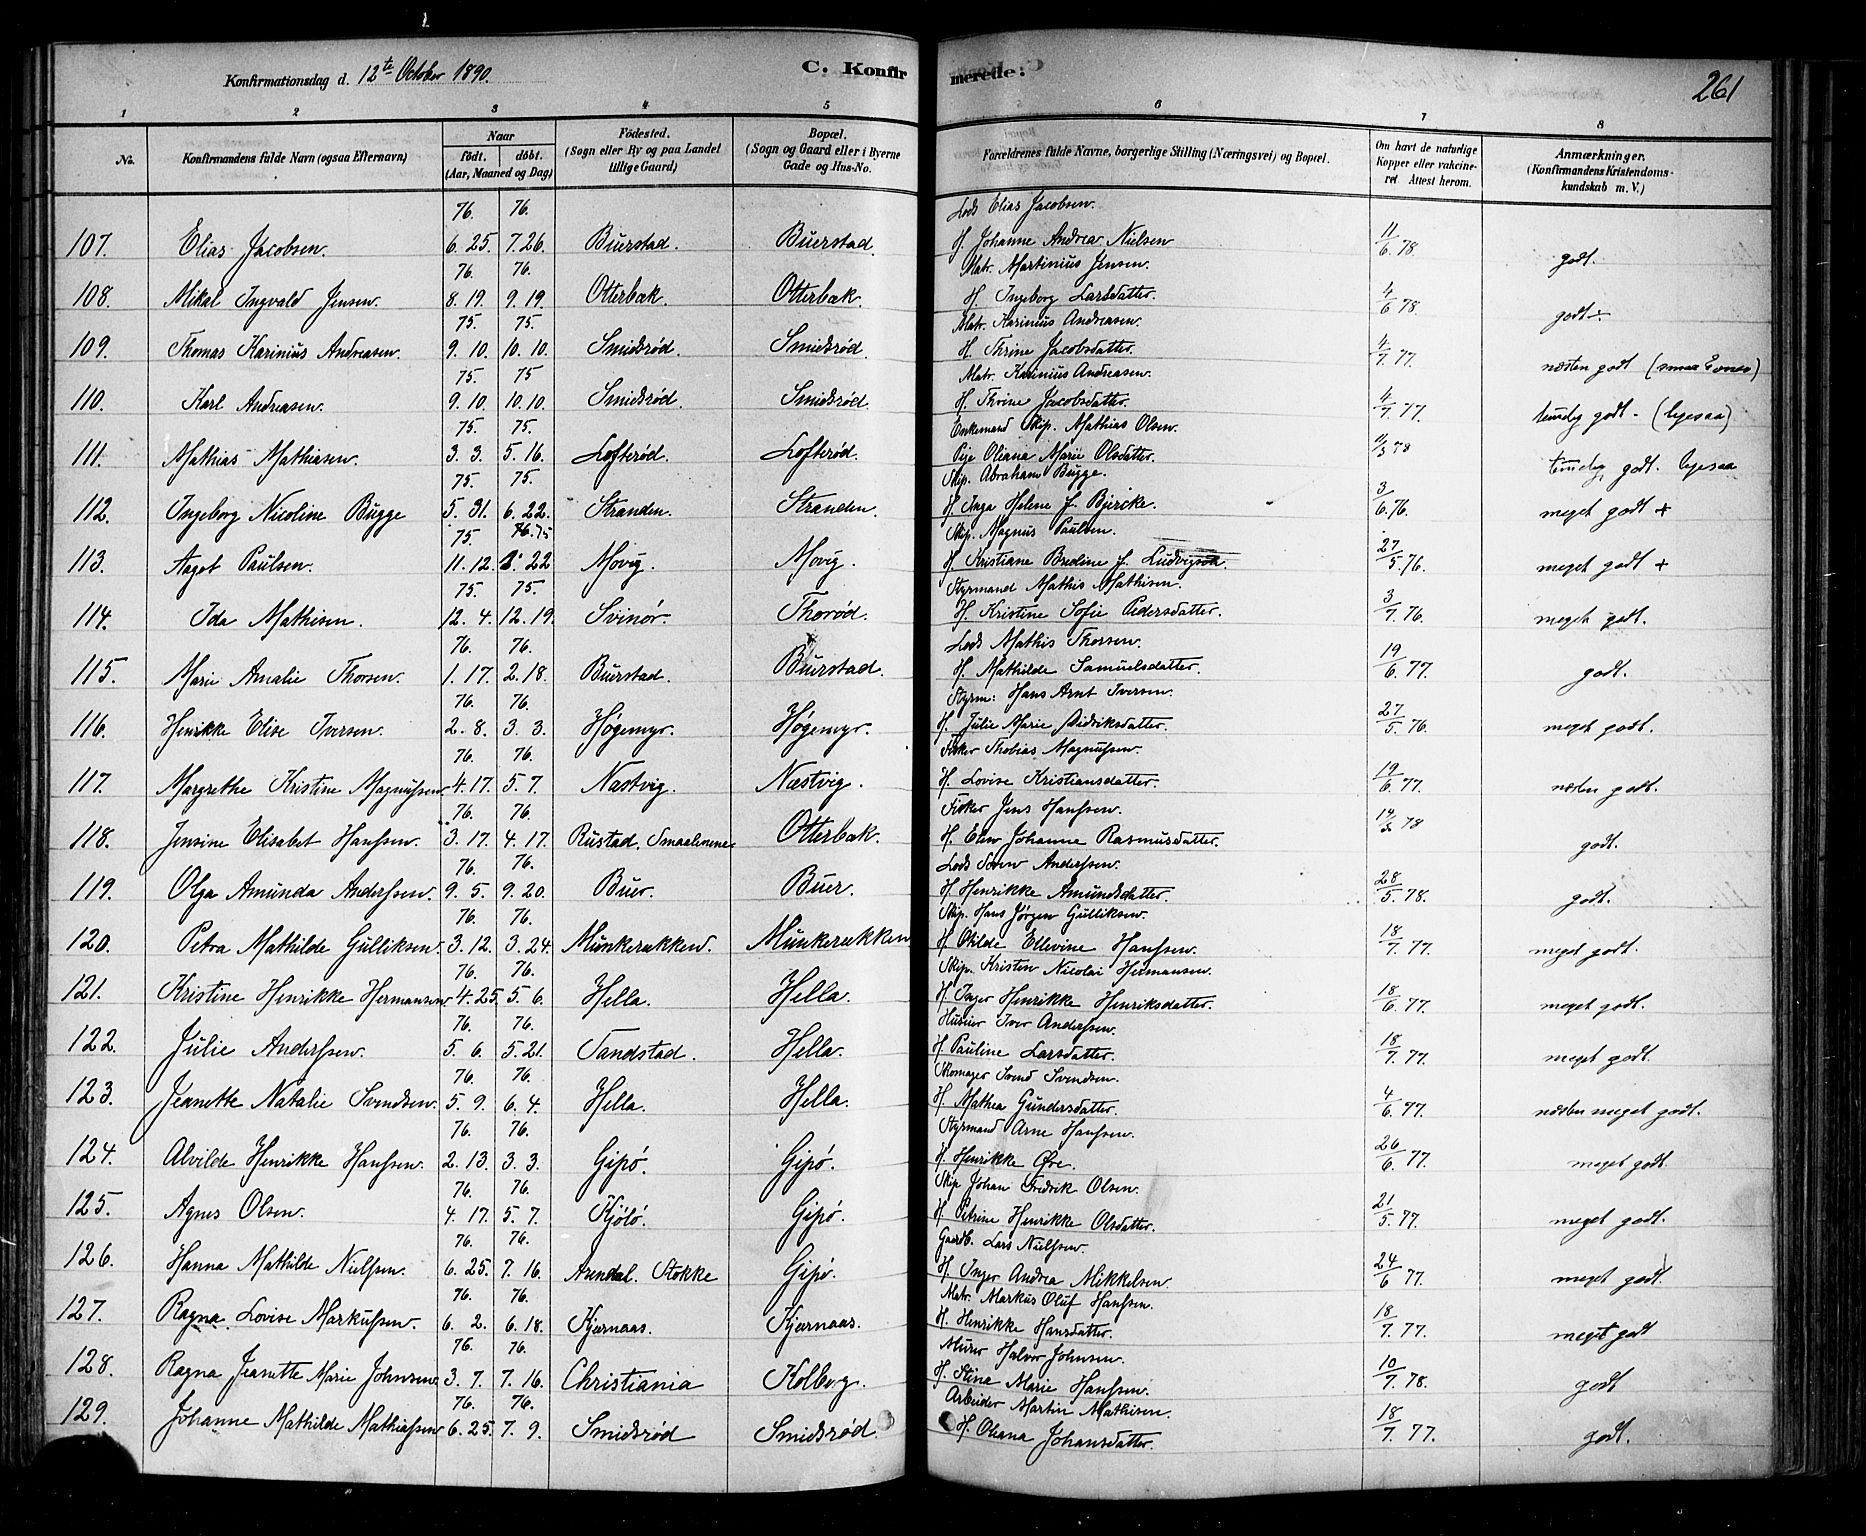 Konfirmationsdag d. 12te October 1890.
C. Konfirmerede:
261
1 2 3 4 5 6 7 8
No.
Konfirmandens fulde Navn (ogsaa Efternavn)
Naar
født. døbt.
(Aar, Maaned og Dag)
Fødested.
(Sogn eller By og paa Landet
tillige Gaard)
Bopæl.
(Sogn og Gaard eller i Byerne
Gade og Hus-No.
Forældrenes fulde Navne, borgerlige Stilling (Næringsvei) og Bopæl.
Om havt de naturlige
Kopper eller vakcine-
ret Attest herom.
Anmærkninger.
(Konfirmandens Kristendoms-
kundskab m. V.)
76. 76. Lods Elias Jacobsen.
107. Elias Jacobsen. 6. 25. 7. 26. Buerstad. Buerstad. H. Johanne Andrea Nielsen 11/6 78. godt.
76. 76. Matr. Martinius Jensen.
108. Mikal Ingvald Jensen. 8. 19. 9. 19. Otterbæk. Otterbæk. H. Ingeborg Larsdatter. 4/6 78. godt
75. 75. Matr. Karinius Andreasen.
109. Thomas Karinius Andreasen. 9. 10. 10. 10. Smidsrød. Smidsrød. H. Thrine Jacobsdatter. 4/7 77. næsten godt (smaa Evner)
75. 75 Matr. Karinius Andreasen.
110. Karl Andreasen. 9. 10. 10. 10. Smidsrød. Smidsrød. H. Thrine Jacobsdatter. 4/7 77. godt. (ligesaa)
75. 75. Enkemand Skip. Mathias Olsen.
111. Mathias Mathiasen. 3. 3. 5. 16. Lofterød. Lofterød. Pige Oliana Marie Olsdatter. 11/3 78 godt. ligesaa
75. 75. Skip. Abraham Bugge.
112. Ingeborg Nicoline Bugge 5. 31. 6. 22. Stranden. Stranden. H. Inga Helene f. Bjercke. 3/6 76. meget godt +
75. 76. 75 Skip. Magnus Paulsen.
113. Aagot Paulsen. 11. 12. 22 Movig. Movig. H. Kristiane Bredine f. Ludvigsen 27/5 76. meget godt +
75. 75. Styrmand Mathis Mathisen.
114. Ida Mathisen. 12. 4. 12. 19. Svinør. Thorød. H. Kristine Sofie Pedersdatter. 3/7 76. meget godt.
76. 76. Lods Mathis Thorsen.
115. Marie Amalie Thorsen. 1. 17. 2. 18. Buerstad. Buerstad. H. Mathilde Samuelsdatter 19/6 77. godt.
76. 76. Styrm: Hans Arnt Iversen.
116. Henrikke Elise Iversen. 2. 8. 3. 3. Høgemyr. Høgemyr. H. Julie Marie Didriksdatter. 27/5 76. meget godt.
76. 76. Fisker Thobias Magnussen.
117. Margrethe Kristine Magnussen 4. 17. 5. 7. Næstvig. Næstvig. H. Lovise Kristiansdatter. 19/6 77. næsten godt.
76. 76. Fisker Jens Hanssen.
118. Jensine Elisabet Hanssen. 3. 17. 4. 17. Rustad. Smaalenene. Otterbæk. H. Elen Johanne Rasmusdatter. 14/3 78 godt.
76. 76. Lods Søren Anderssen.
119. Olga Amunda Anderssen. 9. 5. 9. 20. Buer. Buer. H. Henrikke Amundsdatter. 28/5 78. godt.
76. 76. Skip. Hans Jørgen Gulliksen.
120. Petra Mathilde Gulliksen. 3. 12. 3. 24. Munkerækken. Munkerækken H. Otilde Ellevine Hanssen. 18/7 77. meget godt.
76. 76. Skip. Kristen Nicolai Hermansen.
121. Kristine Henrikke Hermansen 4. 25. 5. 6. Hella. Hella. H. Inger Henrikke Henriksdatter. 18/6 77. meget godt.
76. 76. Huseier Iver Anderssen.
122. Julie Anderssen. 5. 6. 5. 21. Sandstad. Hella. H. Pauline Larsdatter. 18/7 77. meget godt.
76. 76. Skomager Svend Svendsen.
123. Jeanette Natalie Svendsen. 5. 9. 6. 4. Hella. Hella. H. Mathea Gundersdatter. 4/6 77. næsten meget godt.
76. 76. Styrmand Arne Hanssen.
124. Alvilde Henrikke Hanssen. 2. 13. 3. 3. Gipø. Gipø. H. Henrikke Øre. 26/6 77. meget godt.
76. 76. Skip Johan Fredrik Olsen.
125. Agnes Olsen. 4. 17. 5. 7. Kjøló. Gipø. H. Petrine Henrikke Olsdatter. 21/5 77. meget godt.
76. 76. Gaardb. Lars Nielssen.
126. Hanna Mathilde Nielssen. 6. 25. 7. 16. Arendal. Stokke Gipø. H. Inger Andrea Mikkelsen. 24/6 77. meget godt.
76. 76. Matr. Markus Oluf Hanssen.
127. Ragna Lovise Markussen. 6. 2. 6. 18. Kjærnaas. Kjærnaas. H. Henrikke Hansdatter. 18/7 77. meget godt
76. 76. Murer Halvor Johnsen.
128. Ragna Jeanette Marie Johnsen 3. 7. 7. 16. Christiania Kolberg. H. Stina Marie Hanssen. 10/7 78. godt
76. 76. Arbeider Martin Mathisen.
129. Johanne Mathilde Mathiassen 6. 25. 7. 9. Smidsrød Smidsrød. H. Oliana Johansdatter. 18/7 77. godt.